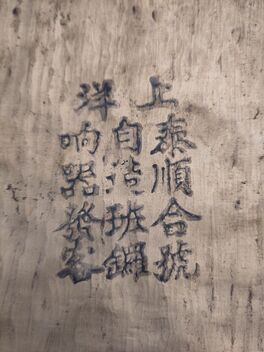 上洋
泰順合號
自造班鑼
响器發客